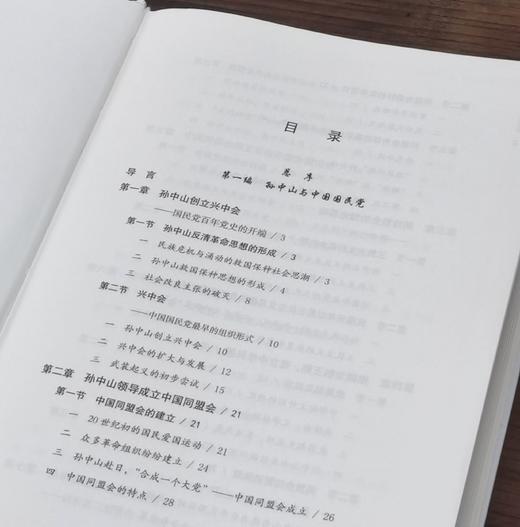 目 录
总 序
第一编 孙中山与中国国民党
导 言
第一章 孙中山创立兴中会
——国民党百年党史的开端 / 3
第一节 孙中山反清革命思想的形成 / 3
一 民族危机与涌动的救国保种社会思潮 / 3
二 孙中山救国保种思想的形成 / 4
三 社会改良主张的破灭 / 8
第二节 兴中会
——中国国民党最早的组织形式 / 10
一 孙中山创立兴中会 / 10
二 兴中会的扩大与发展 / 12
三 武装起义的初步尝试 / 15
第二章 孙中山领导成立中国同盟会 / 21
第一节 中国同盟会的建立 / 21
一 20世纪初的国民爱国运动 / 21
二 众多革命组织纷纷建立 / 24
三 孙中山赴日，“合成一个大党”——中国同盟会成立 / 26
四 中国同盟会的特点 / 28